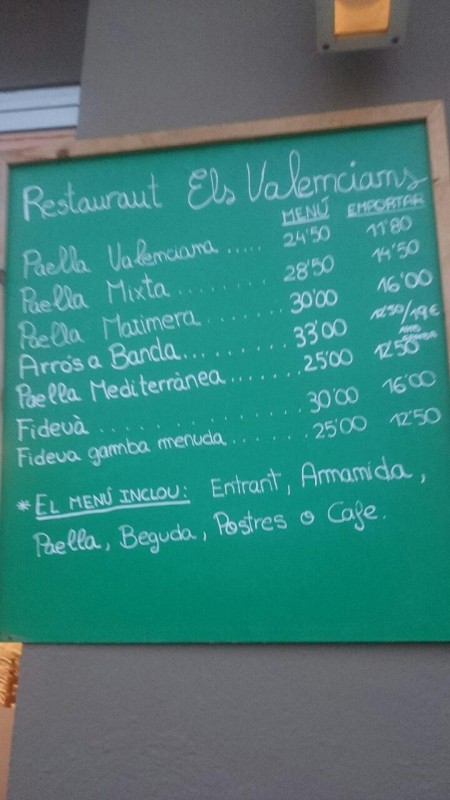 Restaurant Els Valencians
MENÚ EMPORTAR
Paella Valenciana ..... 24'50 11'80
Paella Mixta ........ 28'50 14'50
Paella Marinera ....... 30'00 16'00
Arròs a Banda ........ 33'00 12'50/19€
Paella Mediterrànea ....... 25'00 12'50
Fideuà ............. 30'00 16'00
Fideua gamba menuda ....... 25'00 12'50
* EL MENÚ INCLOU: Entrant, Amanida,
Paella, Beguda, Postres o Cafe.